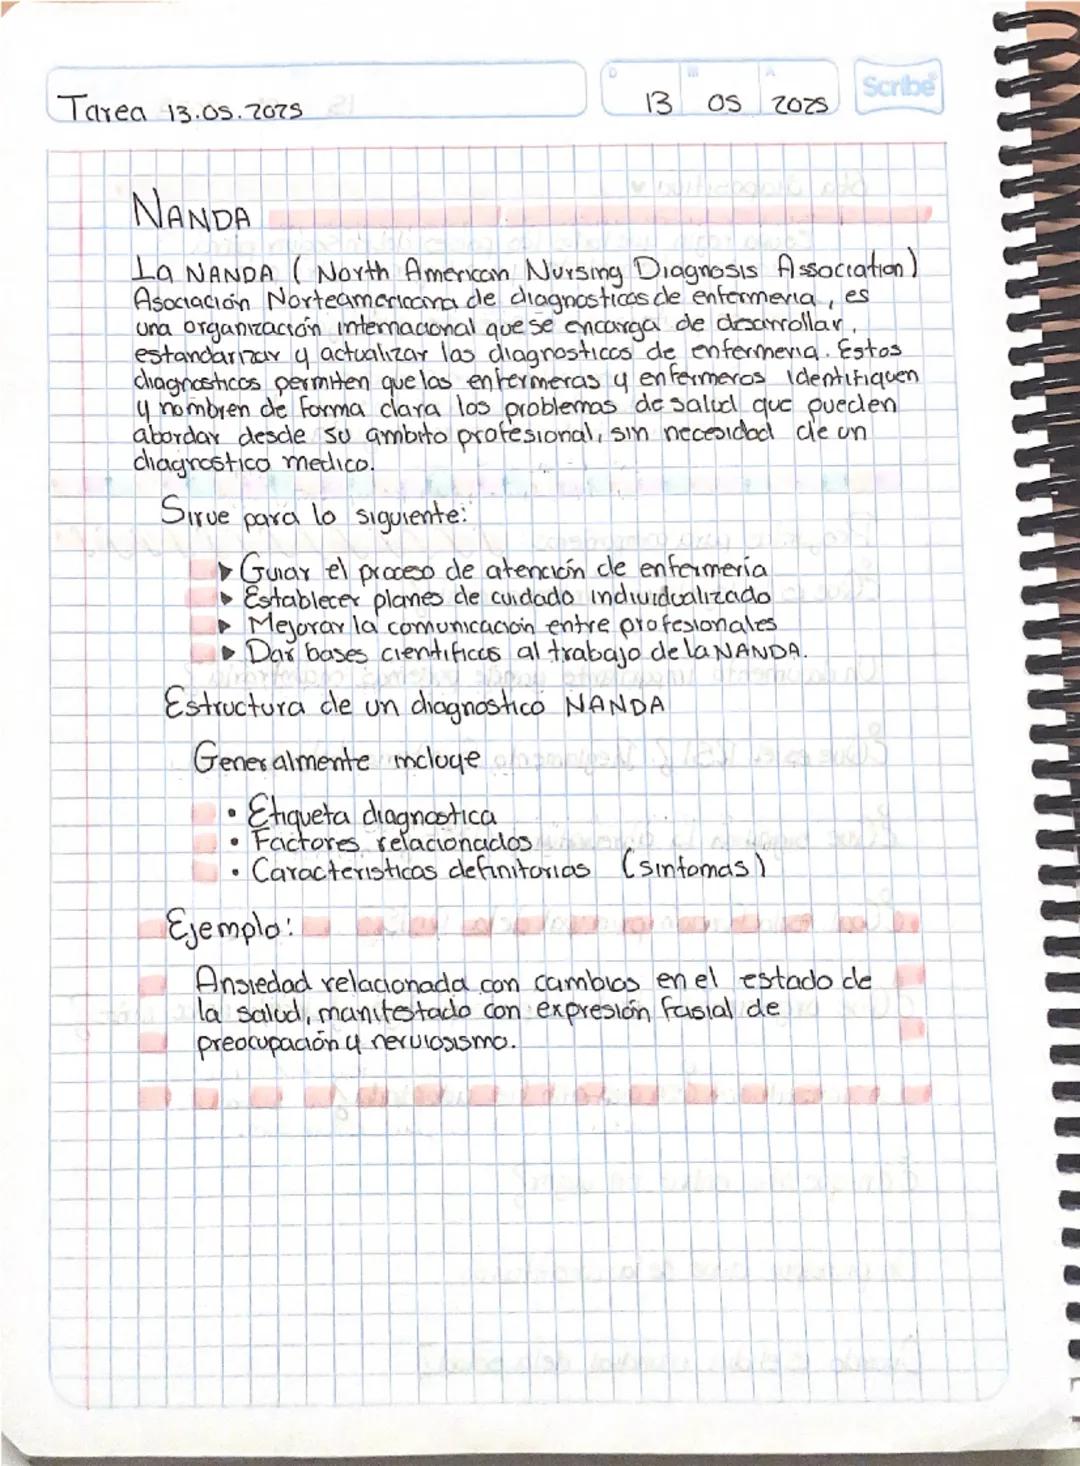 Tarea 13.05.2025
D M A
13 05 2025
Scribe
NANDA
La NANDA ( North American Nursing Diagnosis Association)
Asociación Norteamericana de diagnosticos de enfermeria, es
una organización internacional que se encarga de desarrollar,
estandarizar y actualizar las diagnosticos de enfermeria. Estos
diagnosticos permiten que las enfermeras y enfermeros identifiquen
y nombren de forma clara los problemas de salud que pueden
abordar desde su ambito profesional, sin necesidad de un
diagnostico medico.
Sirve para lo siguiente:
▶ Guiar el proceso de atención de enfermería
▶ Establecer planes de cuidado individualizado
▶ Mejorar la comunicación entre profesionales
▶ Dar bases cientificas al trabajo de la NANDA.
Estructura de un diagnostico NANDA
Generalmente incluye
• Etiqueta diagnostica
• Factores relacionados
• Caracteristicas definitorias (sintomas)
Ejemplo:
Ansiedad relacionada con cambios en el estado de
la salud, manifestado con expresión fasial de
preocupación y nerviosismo.